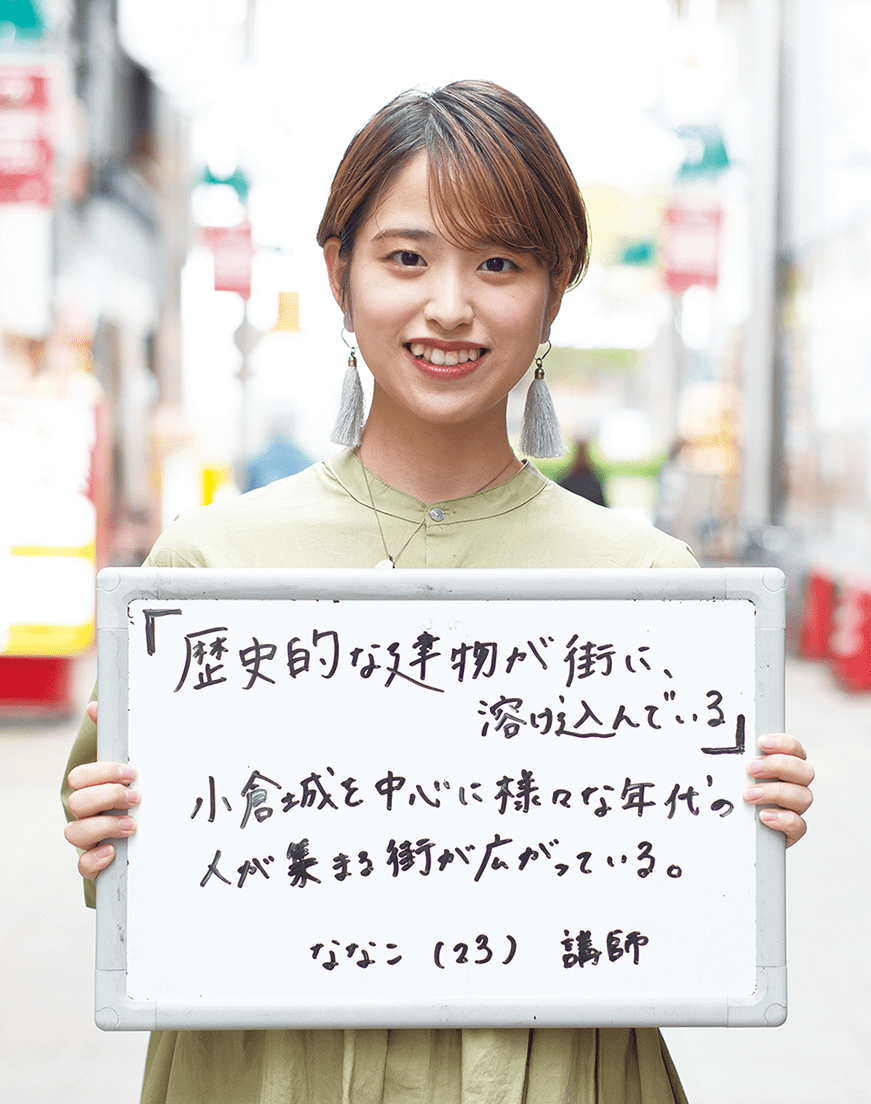 「歴史的な建物が街に、
溶け込んでいる」
小倉城を中心に様々な年代の
人が集まる街が広がっている。
ななこ(23) 講師